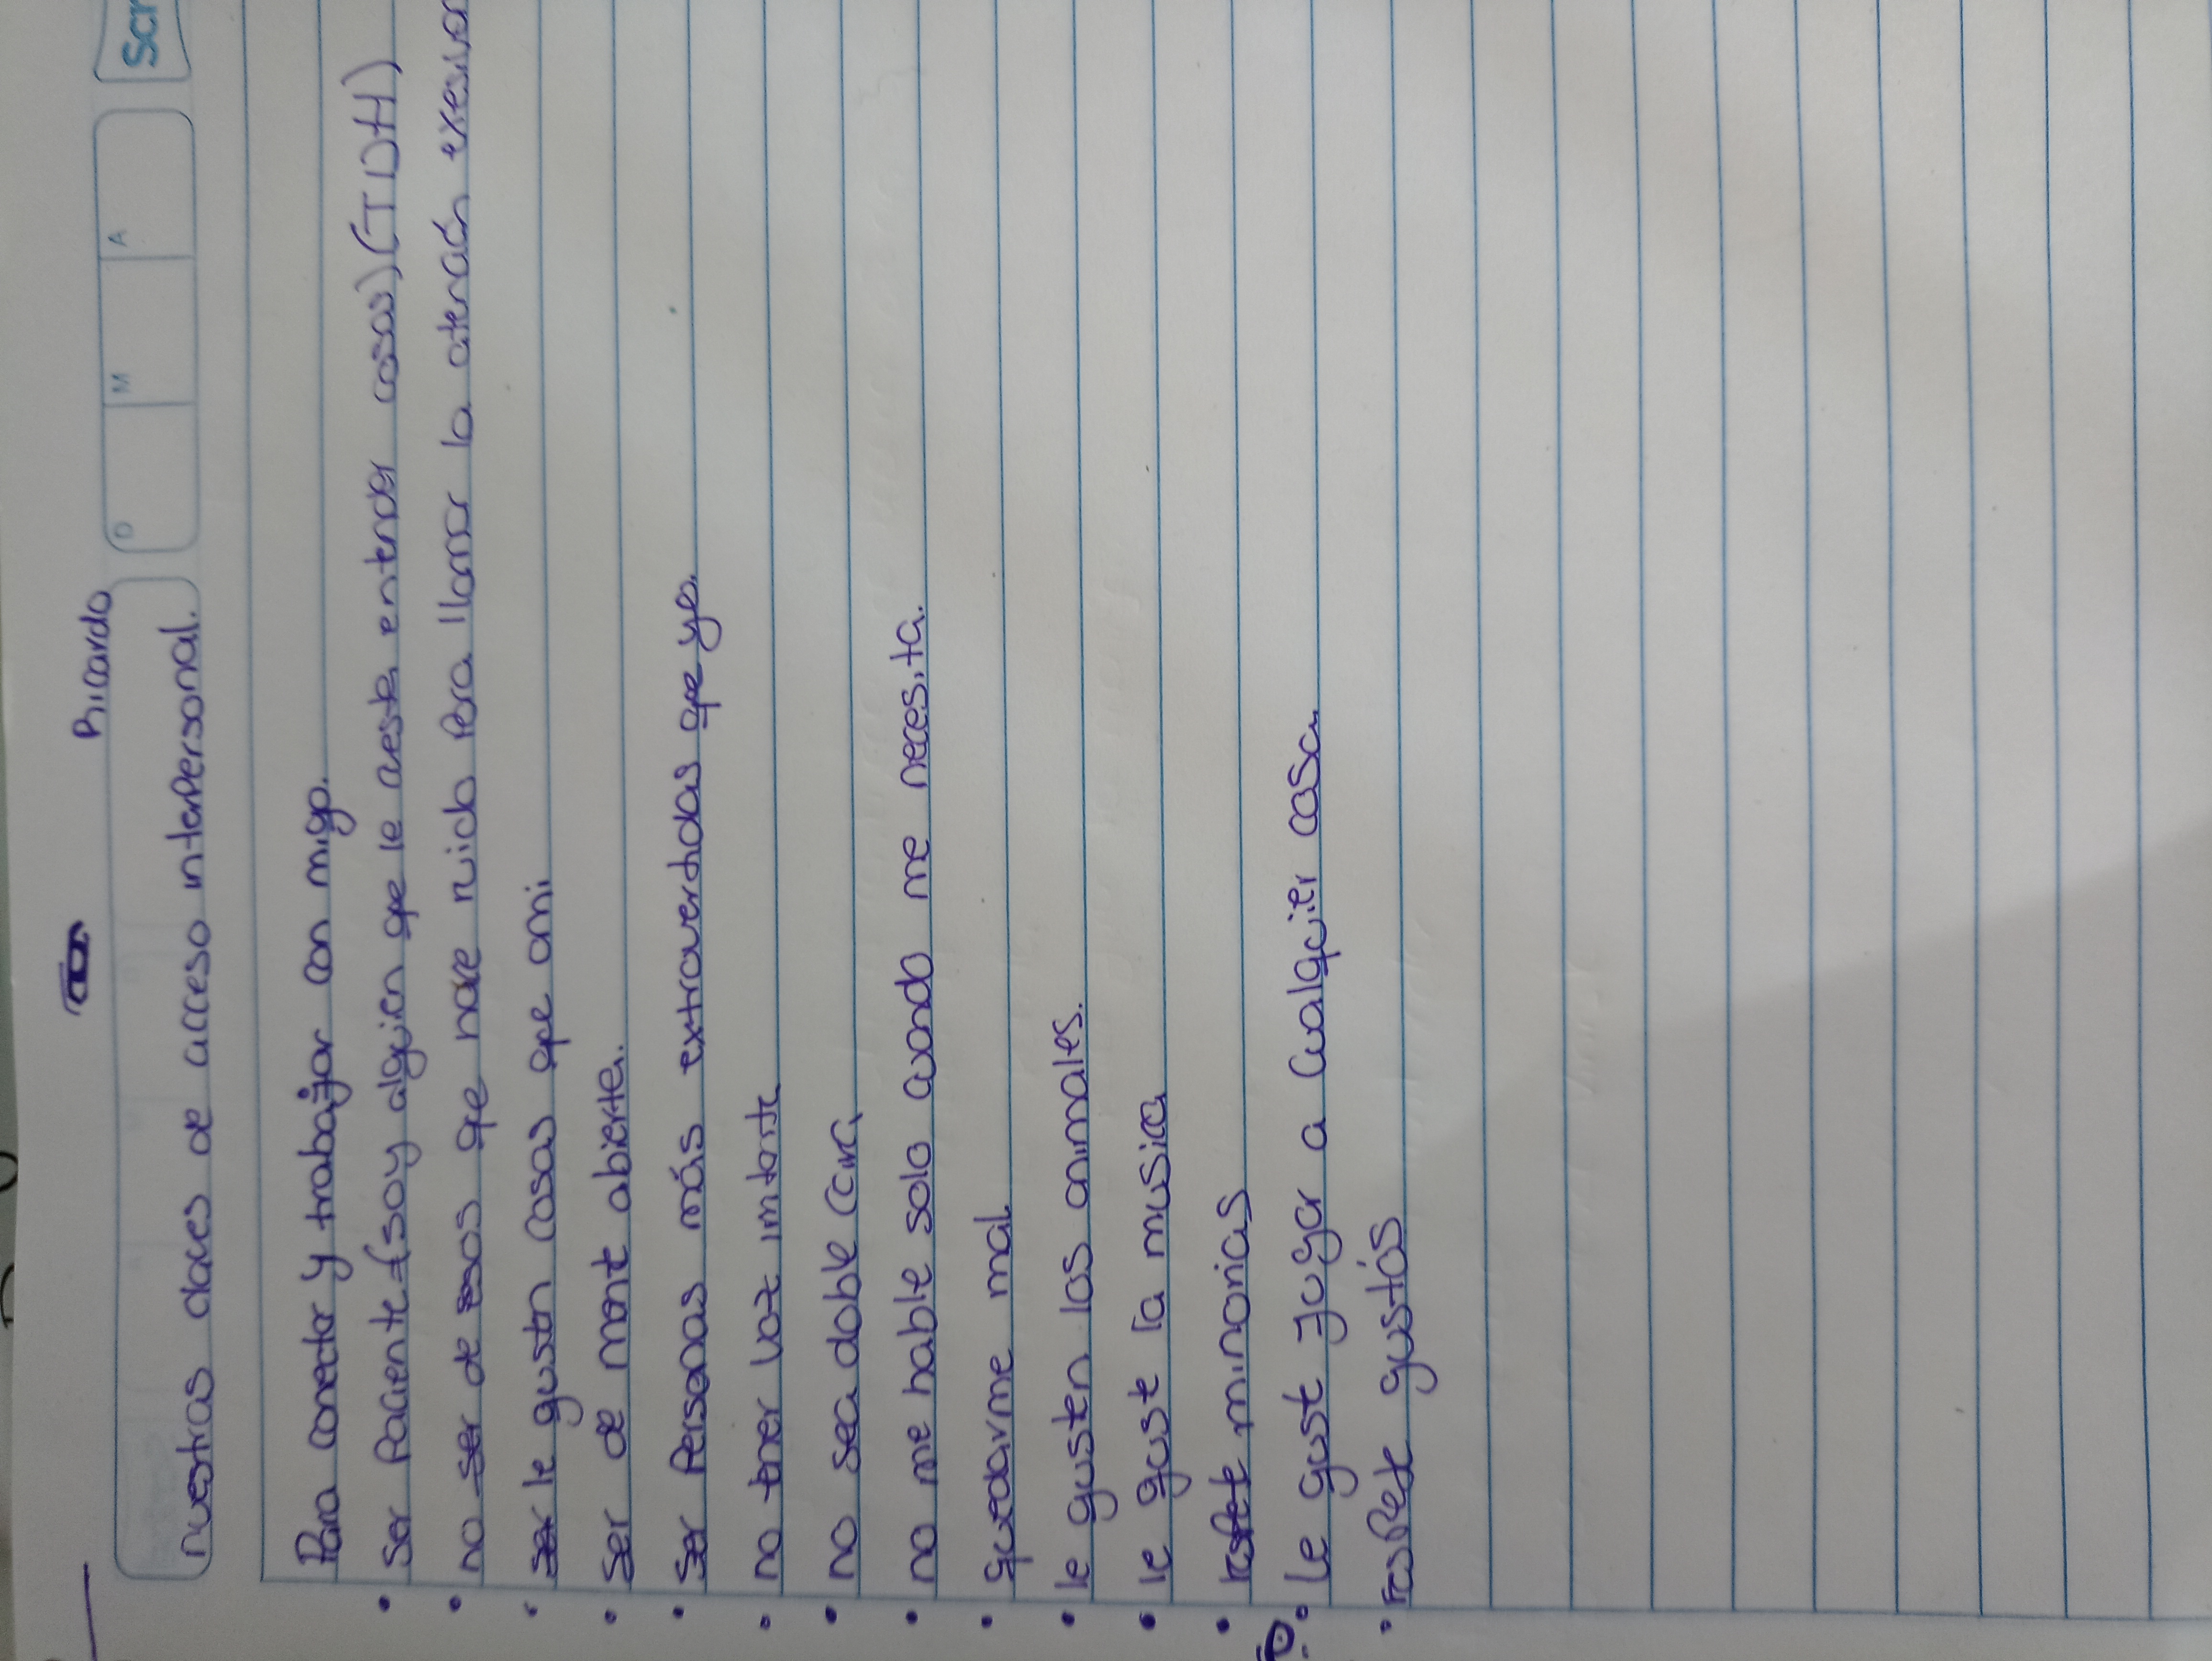 Ricardo
D M A
Scr
nuestras claces de acceso interpersonal.
Para conectar y trabajar con migo.
• Ser Paciente (soy algien qe le cueste entender cosas) (TDH)
• no ser de esos qe hace ruido Para llamar la atención exesivar
• le gustan cosas qe ami
• Ser de ment abierta.
• Ser Personas más extrovertidas qe yo.
• no tner voz imtante
• no sea doble Cara
• no me hable solo cuando me necesita.
• quedarme mal
• le gusten los animales.
• le guste la musica
• respet minorias
• Le gust Jugar a Cualqcier cosa.
• resPete gustós